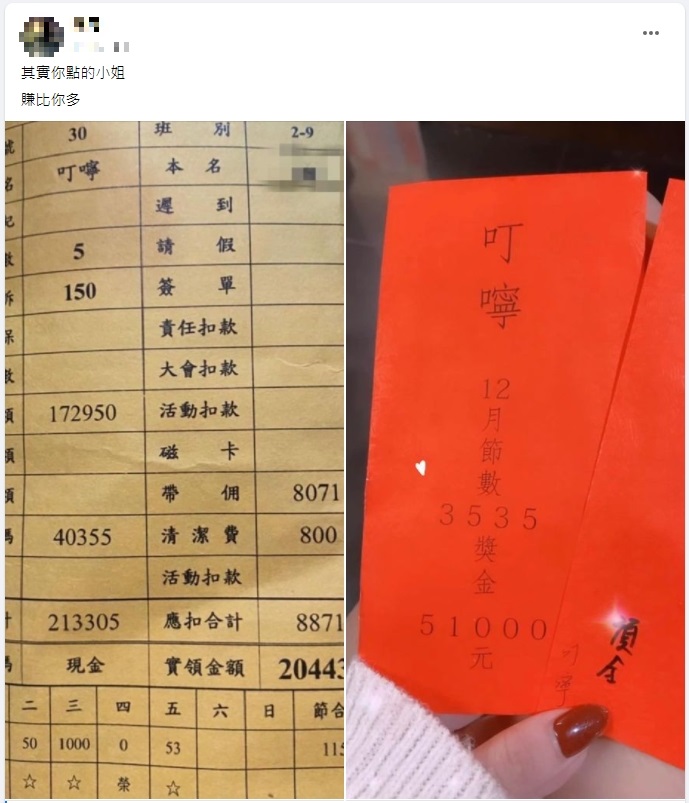 其實你點的小姐
賺比你多
30 班別 2-9
叮嚀 本名
遲到
5 請假
150 簽單
責任扣款
大會扣款
172950 活動扣款
磁卡
帶佣 8071
40355 清潔費 800
活動扣款
213305 應扣合計 8871
現金 實領金額 20443
二 三 四 五 六 日 節合
50 1000 0 53 115
☆ ☆ 榮 ☆
叮嚀
12
月
節
數
3535
獎
金
51000
元
叮嚀